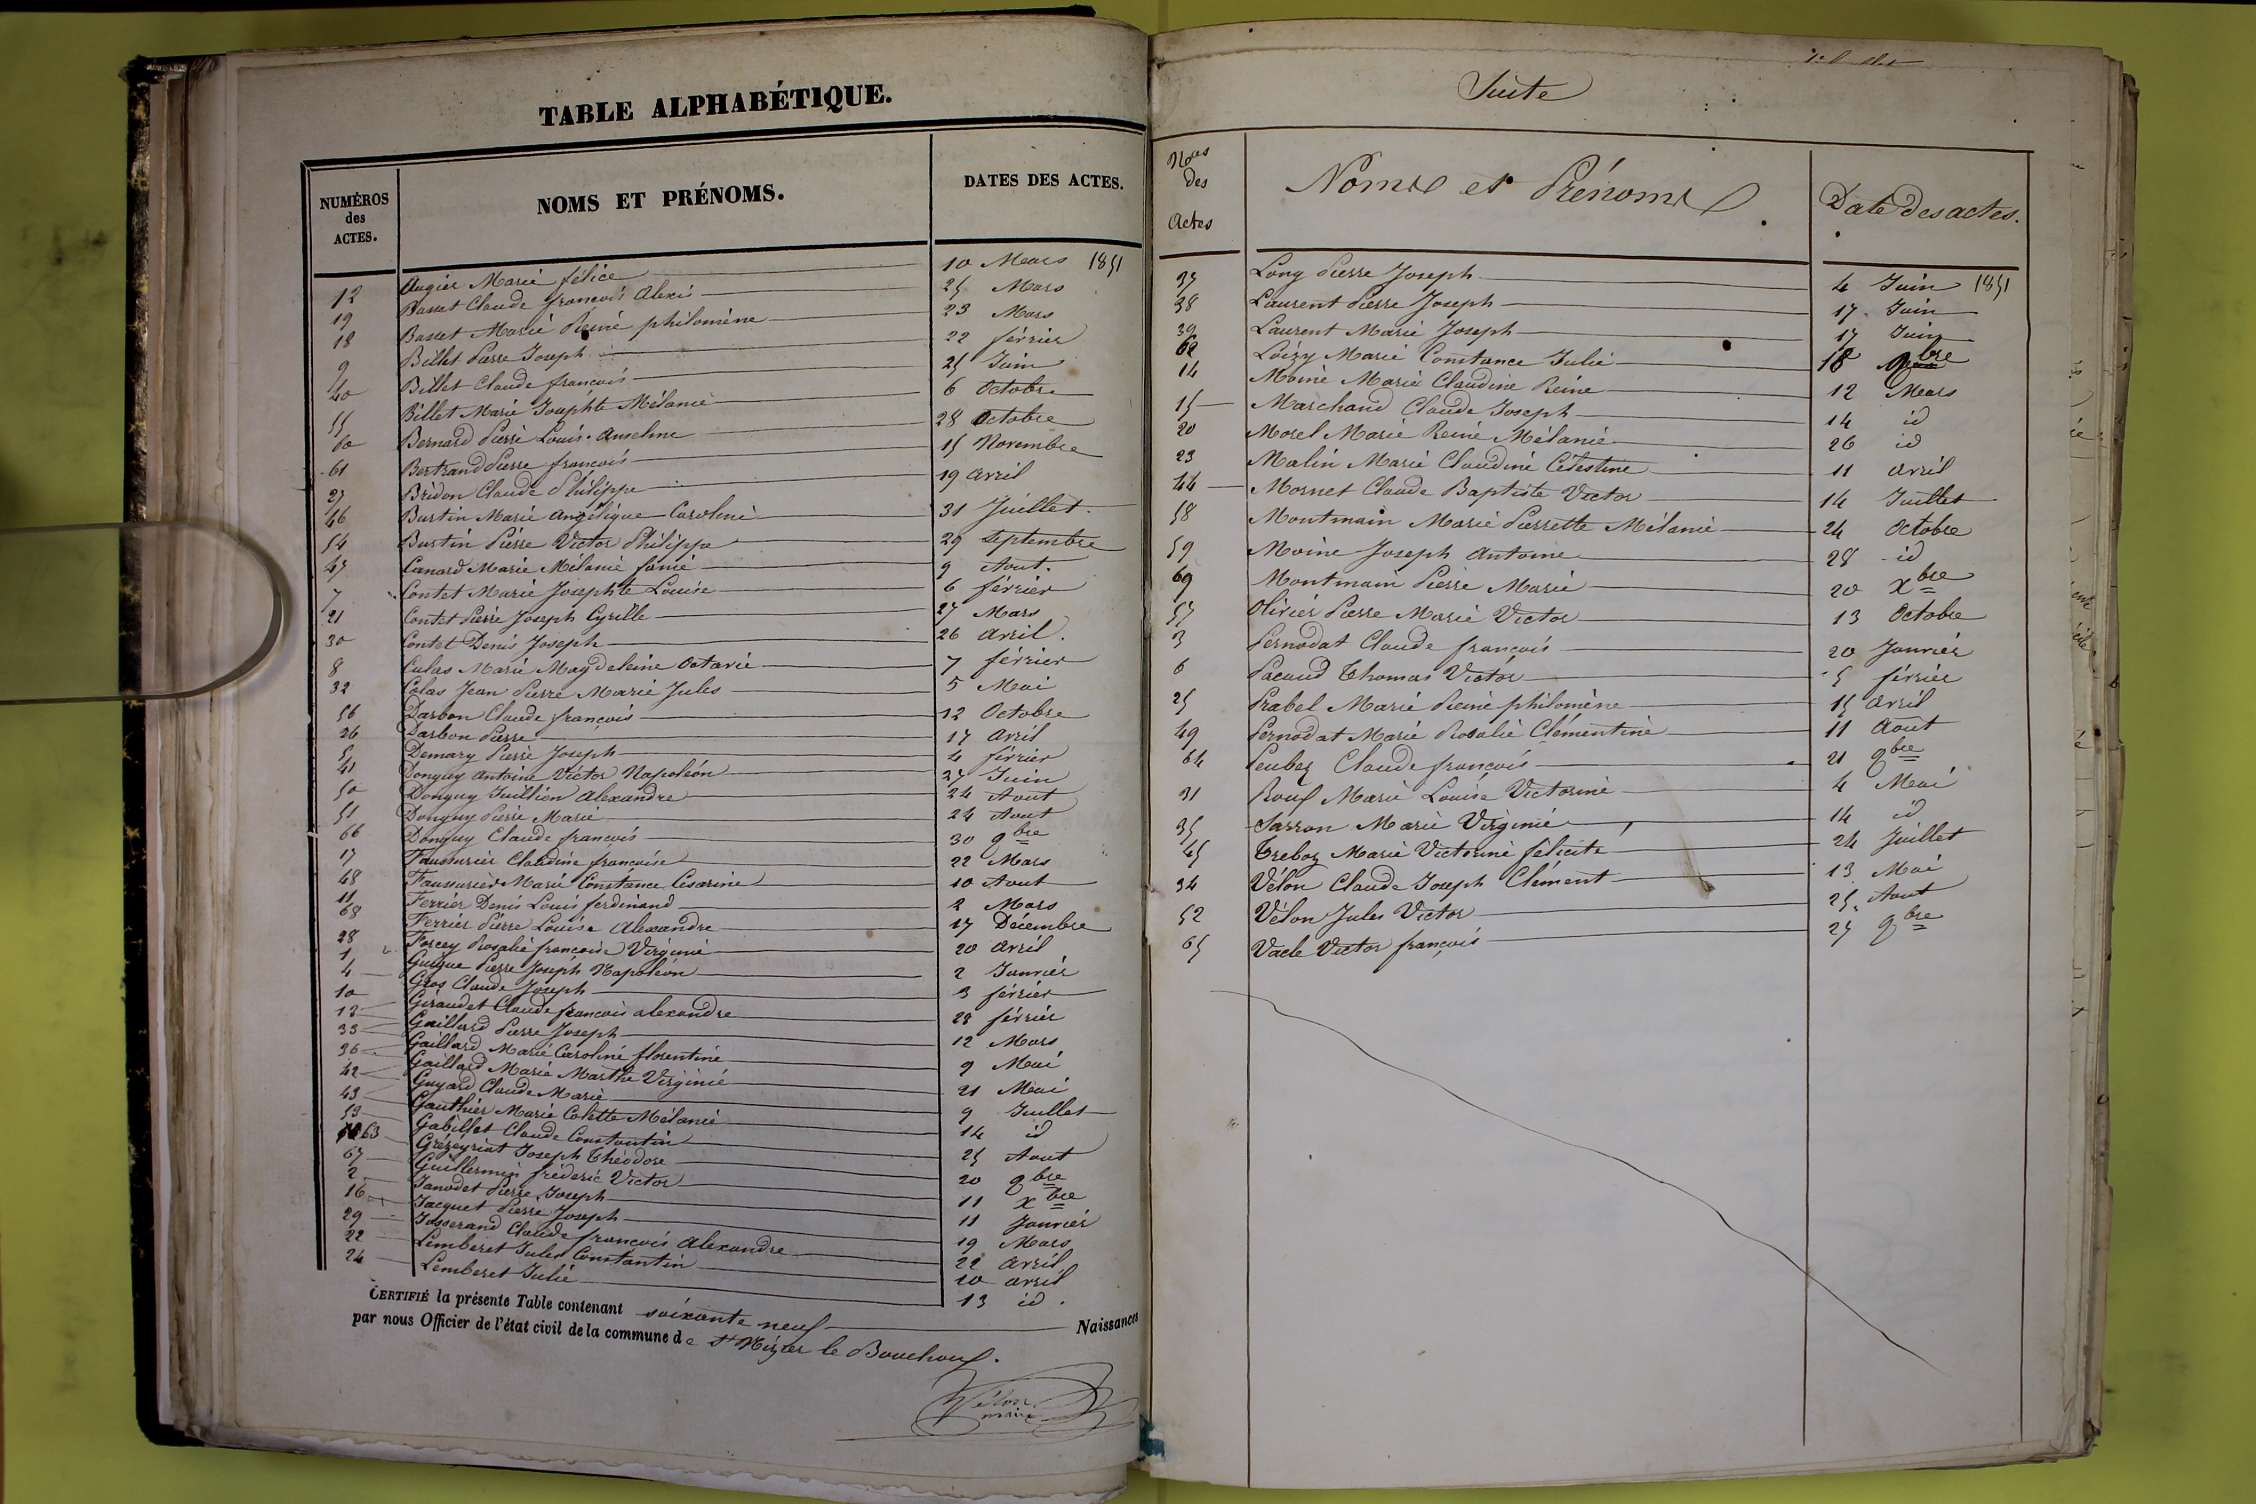 TABLE ALPHABÉTIQUE.
NUMÉROS des ACTES. NOMS ET PRÉNOMS. DATES DES ACTES.
12 Augier Marie félice 10 Mars 1851
19 Basset Claude françois Alexis 25 Mars
18 Basset Marie Reine philomène 23 Mars
9 Billet Pierre Joseph 22 février
40 Billet Claude françois 25 Juin
55 Billet Marie Josephte Mélanie 6 Octobre
60 Bernard Pierre Louis Anselme 28 Octobre
61 Bertrand Pierre françois 15 Novembre
27 Bridon Claude Philippe 19 avril
46 Burtin Marie Angélique Caroline 31 Juillet
54 Burtin Pierre Victor Philippe 29 Septembre
47 Canard Marie Mélanie fanie 9 Aout.
7 Contet Marie Josephte Louise 6 février
21 Contet Pierre Joseph Cyrille 27 Mars
30 Contet Denis Joseph 26 avril.
8 Culas Marie Magdeleine Octavie 7 février
32 Colas Jean Pierre Marie Jules 5 Mai
56 Darbon Claude françois 12 Octobre
26 Darbon Pierre 17 avril
5 Demary Pierre Joseph 4 février
41 Donguy Antoine Victor Napoléon 27 Juin
50 Donguy Juillien Alexandre 24 Aout
51 Donguy Pierre Marie 24 Aout
66 Donguy Claude françois 30 9bre
17 Faussurier Claudine françoise 22 Mars
48 Faussurier Marie Constance Cesarine 10 Aout
11 Ferrier Denis Louis ferdinand 2 Mars
68 Ferrier Pierre Louise Alexandre 17 Décembre
28 Forcey Rosalie françoise Virginie 20 avril
1 Guigue Pierre Joseph Napoléon 2 Janvier
4 Gros Claude Joseph 3 février
10 Giraudet Claude françois alexandre 28 février
13 Gaillard Pierre Joseph 12 Mars
33 Gaillard Marie Caroline florentine 9 Mai
36 Gaillard Marie Marthe Virginie 21 Mai
42 Guyard Claude Marie 9 Juillet
43 Gauthier Marie Colette Mélanie 14 id
53 Gabillet Claude Constantin 25 Aout
63 Grézeyriat Joseph Théodore 20 9bre
67 Guillermin fréderic Victor 11 Xbre
2 Janodet Pierre Joseph 11 Janvier
16 Jacquet Pierre Joseph 19 Mars
29 Josserand Claude françois Alexandre 22 avril
22 Lemberet Jules Constantin 10 avril
24 Lemberet Julie 13 id.
CERTIFIÉ la présente Table contenant soixante neuf Naissances
par nous Officier de l'état civil de la commune de St Nizier le Bouchoux.
Vélon
maire
Suite
Nos des Actes Noms et Prénoms. Date des actes.
37 Long Pierre Joseph 4 Juin 1851
38 Laurent Pierre Joseph 17 Juin
39 Laurent Marie Joseph 17 Juin
62 Loizy Marie Constance Julie 18 9bre
14 Moine Marie Claudine Reine 12 Mars
15 Marchand Claude Joseph 14 id
20 Morel Marie Reine Mélanie 26 id
23 Malin Marie Claudine Célestine 11 avril
44 Mornet Claude Baptiste Victor 14 Juillet
58 Montmain Marie Pierrette Mélanie 24 Octobre
59 Moine Joseph Antoine 28 id
69 Montmain Pierre Marie 20 Xbre
57 Olivier Pierre Marie Victor 13 Octobre
3 Pernodat Claude françois 20 Janvier
6 Pacaud Thomas Victor 5 février
25 Prabel Marie Reine philomène 15 avril
49 Pernodat Marie Rosalie Clémentine 11 Aout
64 Peubez Claude françois 21 9bre
31 Roux Marie Louise Victorine 4 Mai
35 Sarron Marie Virginie 14 id
45 Treboz Marie Victorine félicite 24 Juillet
34 Vélon Claude Joseph Clément 13 Mai
52 Vélon Jules Victor 25 Aout
65 Vacle Victor françois 27 9bre